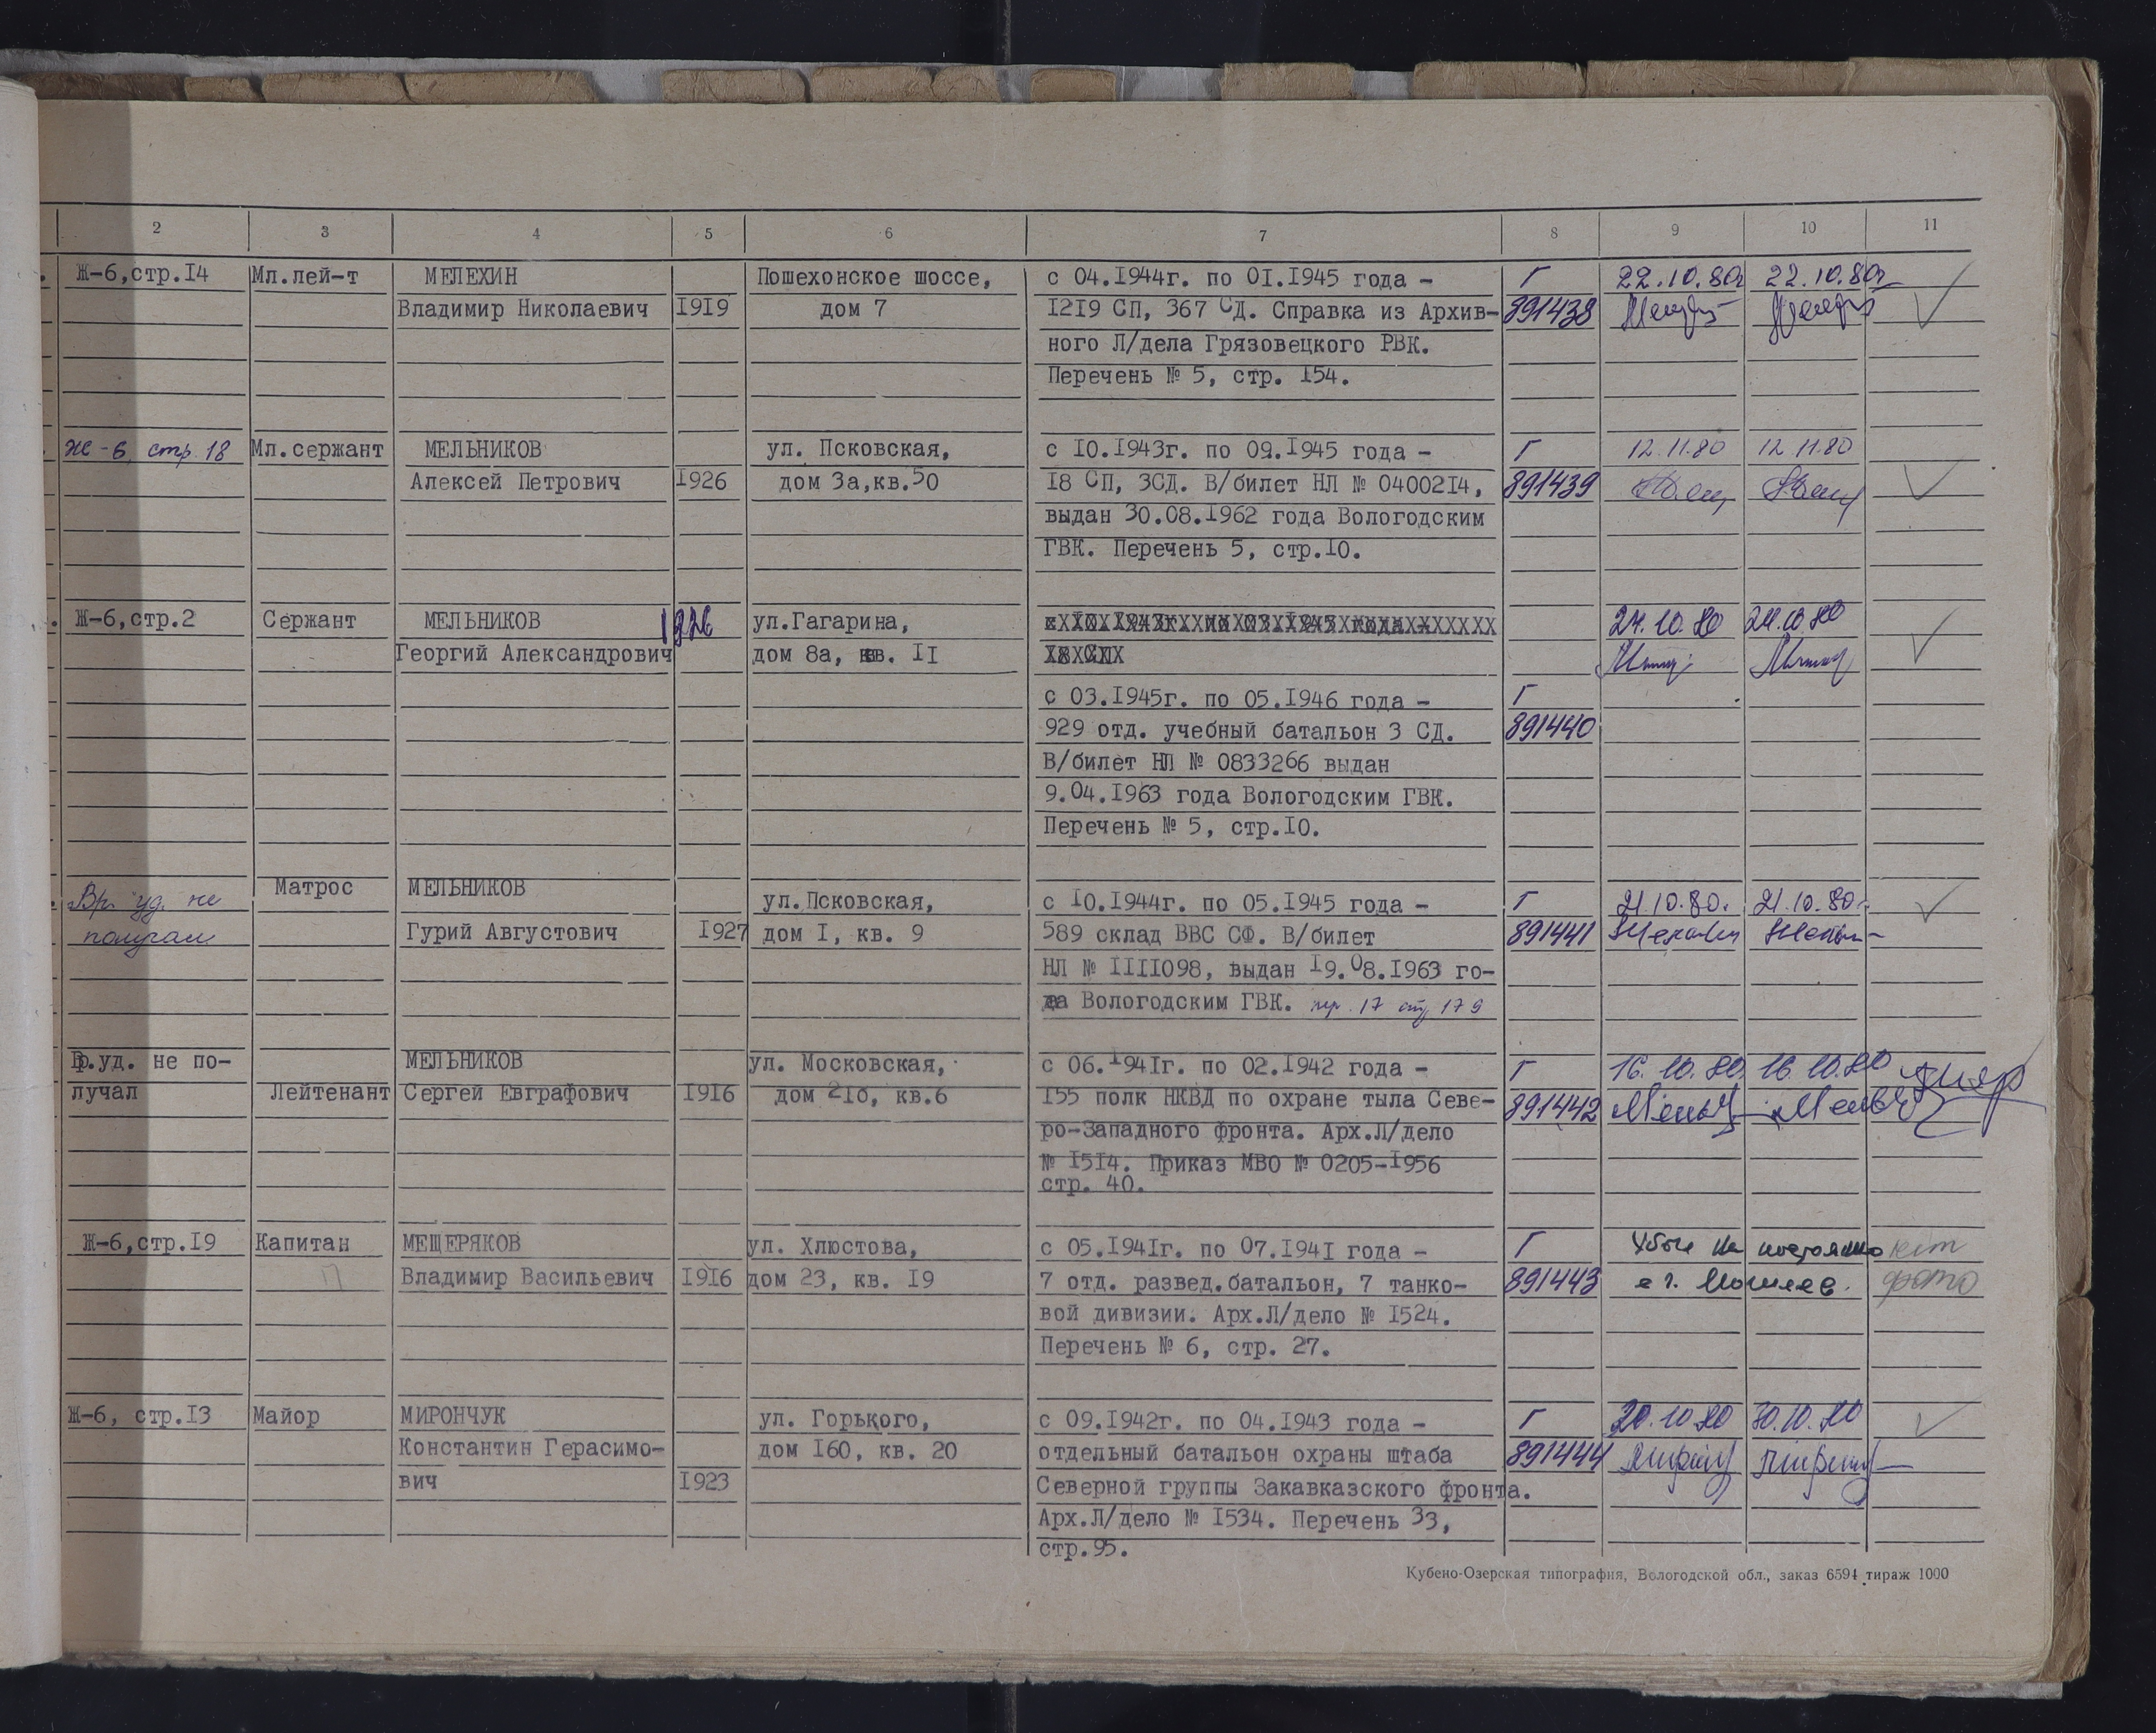 2 3 4 5 6 7 8 9 10 11
Ж-6,стр.I4 Мл.лей-т МЕЛЕХИН Пошехонское шоссе, с 04.I944г. по 0I.I945 года - Г 22.10.80г 22.10.80г
Владимир Николаевич I9I9 дом 7 I2I9 СП, 367 СД. Справка из Архив- 891438
ного Л/дела Грязовецкого РВК.
Перечень № 5, стр. I54.
Ж-6, стр. 18 Мл.сержант МЕЛЬНИКОВ ул. Псковская, с I0.I943г. по 09.I945 года - Г 12.11.80 12 11.80
Алексей Петрович I926 дом 3а,кв.50 I8 СП, 3СД. В/билет НЛ № 04002I4, 891439
выдан 30.08.I962 года Вологодским
ГВК. Перечень 5, стр.I0.
Ж-6,стр.2 Сержант МЕЛЬНИКОВ 1926 ул.Гагарина, 24.10.80 24.10.80
Георгий Александрович дом 8а, кв. II
с 03.I945г. по 05.I946 года - Г
929 отд. учебный батальон 3 СД. 891440
В/билет НЛ № 0833266 выдан
9.04.I963 года Вологодским ГВК.
Перечень № 5, стр.I0.
Вр. уд. не Матрос МЕЛЬНИКОВ ул.Псковская, с I0.I944г. по 05.I945 года - Г 21.10.80. 21.10.80г
получал Гурий Августович I927 дом I, кв. 9 589 склад ВВС СФ. В/билет 891441
НЛ № IIII098, выдан I9.08.I963 го-
да Вологодским ГВК. пер. 17 стр 179
Вр.уд. не по- МЕЛЬНИКОВ ул. Московская, с 06.I94Iг. по 02.I942 года - Г 16.10.80. 16.10.80
лучал Лейтенант Сергей Евграфович I9I6 дом 2Iб, кв.6 I55 полк НКВД по охране тыла Севе- 891442
ро-Западного фронта. Арх.Л/дело
№ I5I4. Приказ МВО № 0205-I956
стр. 40.
Ж-6,стр.I9 Капитан МЕЩЕРЯКОВ ул. Хлюстова, с 05.I94Iг. по 07.I94I года - Г Убыл на постоянно нет
Владимир Васильевич I9I6 дом 23, кв. I9 7 отд. развед.батальон, 7 танко- 891443 в г. Могилев. фото
вой дивизии. Арх.Л/дело № I524.
Перечень № 6, стр. 27.
Ж-6, стр.I3 Майор МИРОНЧУК ул. Горького, с 09.I942г. по 04.I943 года - Г 30.10.80 30.10.80
Константин Герасимо- дом I60, кв. 20 отдельный батальон охраны штаба 891444
вич I923 Северной группы Закавказского фронта.
Арх.Л/дело № I534. Перечень 33,
стр.95.
Кубено-Озерская типография, Вологодской обл., заказ 6594 тираж 1000